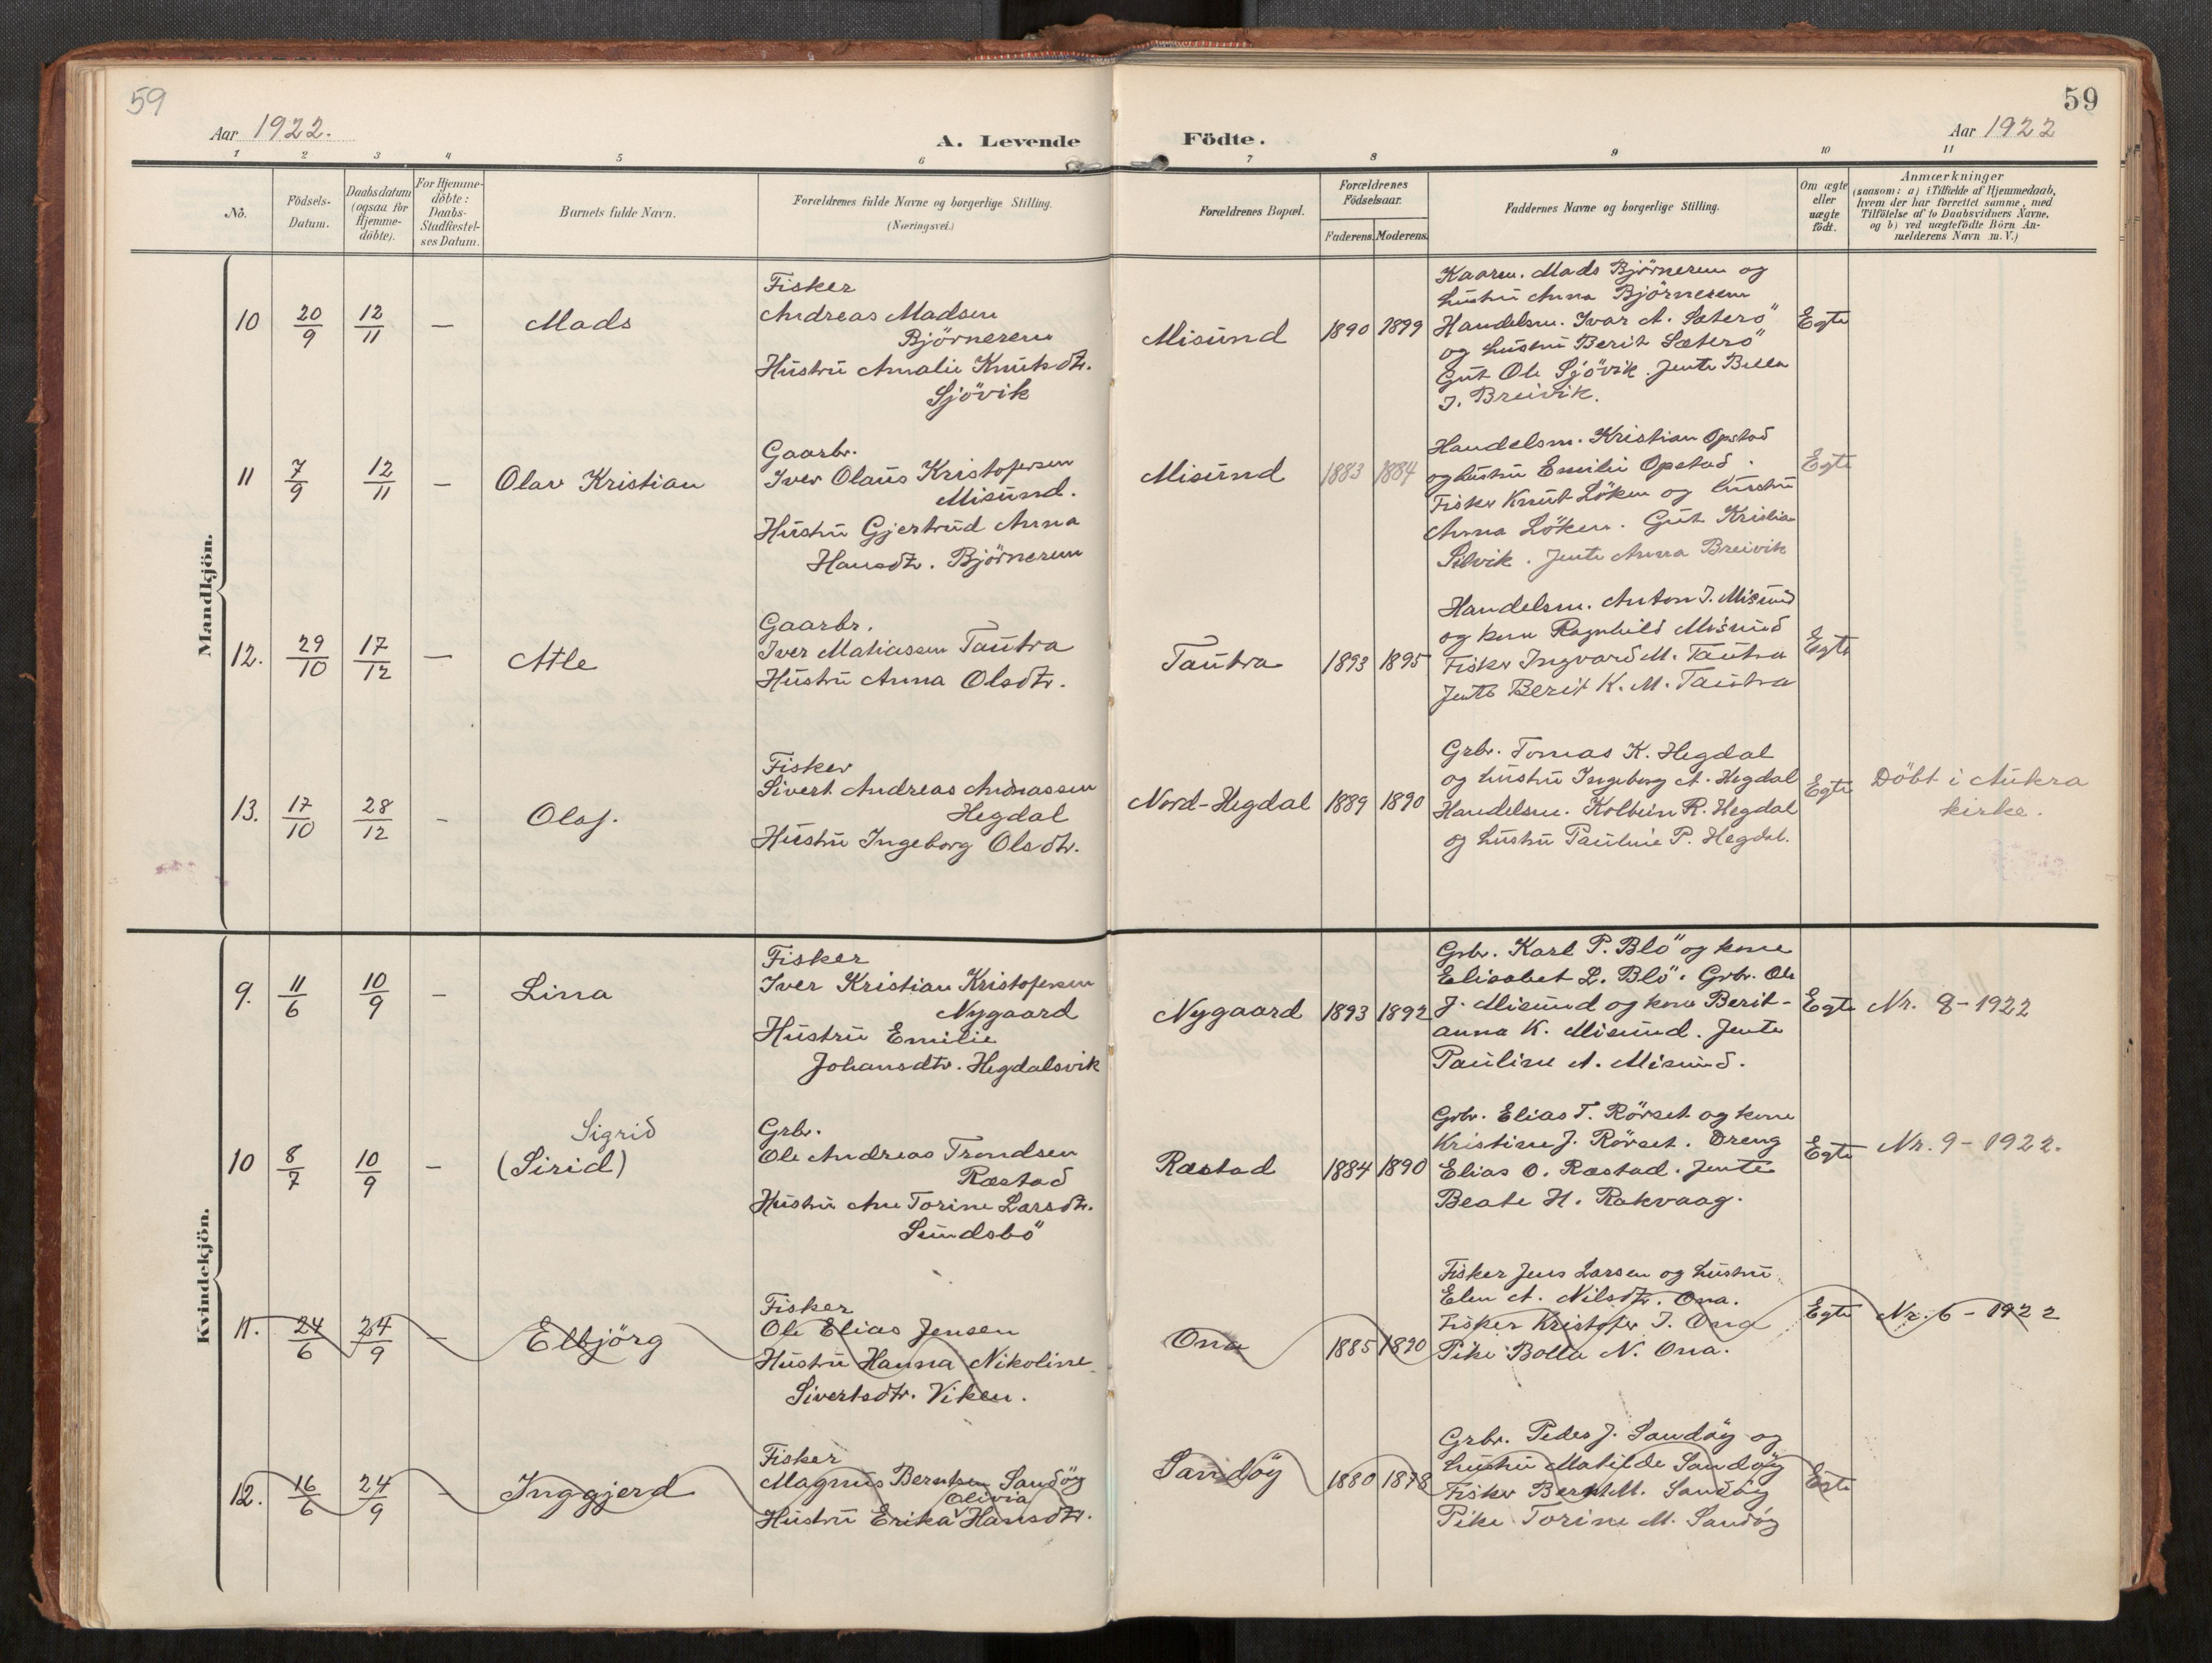 59
59
Aar 1922.
A. Levende Födte.
Aar 1922
1 2 3 4 5 6 7 8 9 10 11
No.
Födsels-
Datum.
Daabsdatum
(ogsaa for
Hjemme-
döbte).
For Hjemme-
döbte:
Daabs-
Stadfæstel-
ses Datum.
Barnets fulde Navn.
Forældrenes fulde Navne og borgerlige Stilling.
(Næringsvei.)
Forældrenes Bopæl.
Forældrenes
Födselsaar.
Faderens. Moderens.
Faddernes Navne og borgerlige Stilling.
Om ægte
eller
uægte
født.
Anmærkninger
(saasom: a) i Tilfælde af Hjemmedaab,
hvem der har forrettet samme, med
Tilföielse af to Daabsvidners Navne,
og b) ved uægtefödte Börn An-
melderens Navn m.V.)
Mandkjön.
10 20/9 12/11 — Mads
Fisker
Andreas Madsen
Björnerem
Hustru Amalie Knutsdtr.
Sjövik
Misund 1890 1899
Kaarm. Mads Björnerem og
hustru Anna Björnerem
Handelsm. Ivar A. Säterö
og hustru Berit Säterö
Gut Ole Sjövik. Jente Bella
J. Breivik.
Egte
11 7/9 12/11 — Olav Kristian
Gaarbr.
Iver Olaus Kristofersen
Misund.
Hustru Gjertrud Anna
Hansdtr. Björnerem
Misund 1883 1884
Handelsm. Kristian Opstad
og hustru Emilie Opstad.
Fisker Knut Löken og hustru
Anna Löken. Gut Kristian
Silvik. Jente Anna Breivik
Egte
12. 29/10 17/12 — Atle
Gaarbr.
Iver Matiassen Tautra
Hustru Anna Olsdtr.
Tautra 1893 1895
Handelsm. Anton J. Misund
og kone Ragnhild Misund
Fisker Ingvard M. Tautra
Jente Berit K. M. Tautra
Egte
13. 17/10 28/12 - Olaf.
Fisker
Sivert Andreas Andreassen
Hegdal
Hustru Ingeborg Olsdtr.
Nord-Hegdal 1889 1890
Grbr. Tomas K. Hegdal
og hustru Ingeborg A. Hegdal
Handelsm. Kolbein R. Hegdal
og hustru Pauline P. Hegdal.
Egte
Döbt i Aukra
kirke.
Kvindekjön.
9. 11/6 10/9 - Lina
Fisker
Iver Kristian Kristofersen
Nygaard
Hustru Emilie
Johansdtr. Hegdalsvik
Nygaard 1893 1892
Grbr. Karl P. Blö og kone
Elisabet L. Blö. Grbr. Ole
J. Misund og kone Berit-
anna K. Misund. Jente
Pauline A. Misund.
Egte Nr. 8 - 1922
Sigrid
10 8/7 10/9 - (Sirid)
Grbr.
Ole Andreas Trondsen
Ræstad
Hustru Ane Torine Larsdtr.
Sundsbö
Ræstad 1884 1890
Grbr. Elias T. Rörset og kone
Kristine J. Rörset. Dreng
Elias O. Ræstad. Jente
Beate H. Rakvaag.
Egte Nr. 9 - 1922.
11. 24/6 24/9 - Elbjörg
Fisker
Ole Elias Jensen
Hustru Hanna Nikoline
Sivertsdtr. Viken.
Ona 1885 1890
Fisker Jens Larsen og hustru
Elen A. Nilsdtr. Ona.
Fisker Kristofer J. Ona
Pike Bolla N. Ona.
Egte Nr. 6 - 1922
12. 16/6 24/9 - Inggjerd
Fisker
Magnus Berntsen Sandöy
Olivia
Hustru Erika Hansdtr.
Sandöy 1880 1878
Grbr. Peder J. Sandöy og
hustru Matilde Sandöy
Fisker Bernt M. Sandöy
Pike Torine M. Sandöy
Egte